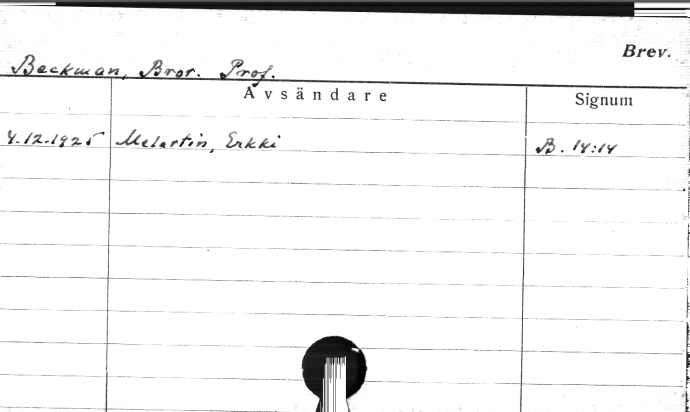 Brev.
Beckman, Bror. Prof.
Avsändare Signum
4.12.1925 Melartin, Erkki B. 14:14